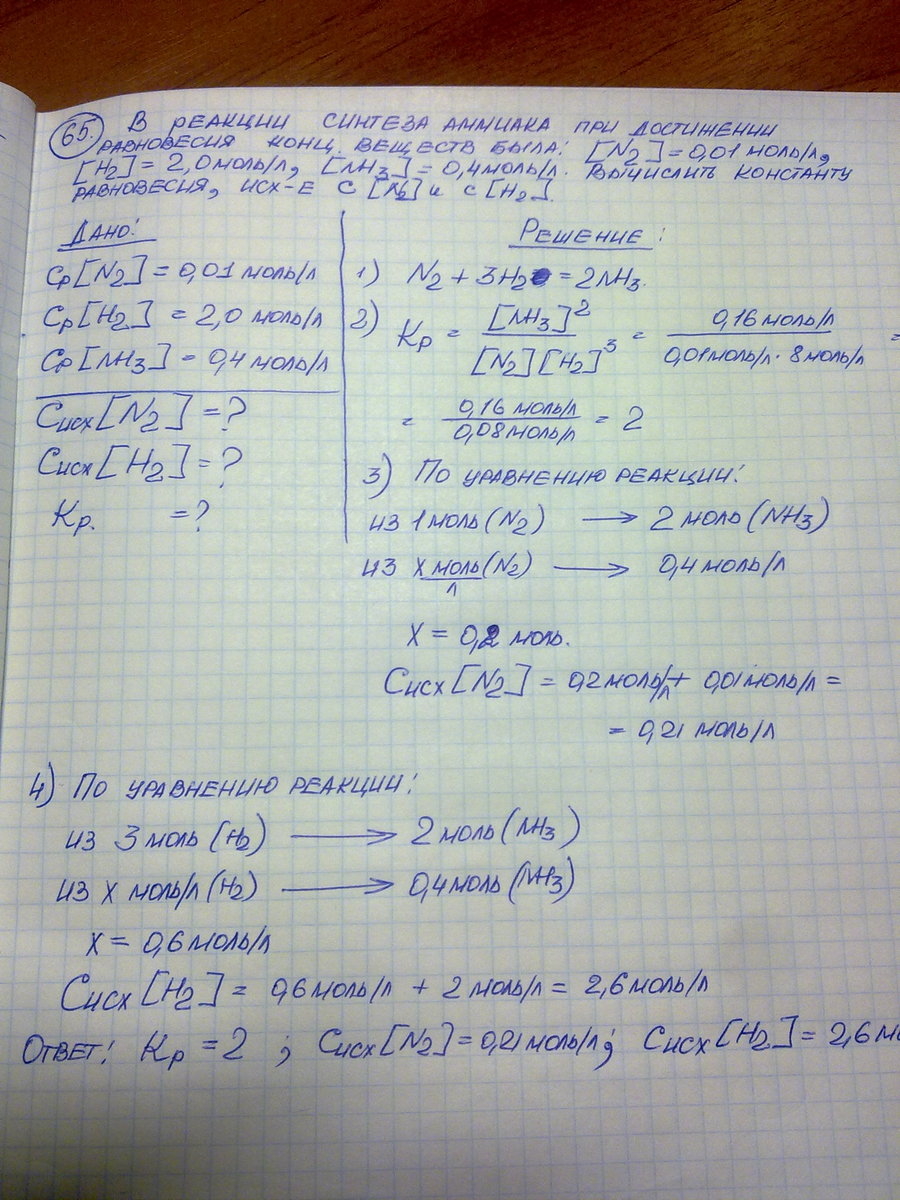 65. В РЕАКЦИИ СИНТЕЗА АММИАКА ПРИ ДОСТИЖЕНИИ
РАВНОВЕСИЯ КОНЦ. ВЕЩЕСТВ БЫЛА: [N2] = 0,01 МОЛЬ/Л,
[H2] = 2,0 МОЛЬ/Л, [NH3] = 0,4 МОЛЬ/Л. ВЫЧИСЛИТЬ КОНСТАНТУ
РАВНОВЕСИЯ, ИСХ-Е С [N2] И С [H2].
ДАНО:
Cр[N2] = 0,01 моль/л
Cр[H2] = 2,0 моль/л
Cр[NH3] = 0,4 моль/л
Cисх[N2] = ?
Cисх[H2] = ?
Kр. = ?
РЕШЕНИЕ:
1) N2 + 3H2 = 2NH3.
2) Kр = [NH3]^2 / [N2][H2]^3 = 0,16 моль/л / 0,01 моль/л · 8 моль/л =
= 0,16 моль/л / 0,08 моль/л = 2
3) ПО УРАВНЕНИЮ РЕАКЦИИ:
ИЗ 1 моль (N2) → 2 моль (NH3)
ИЗ X моль/л (N2) → 0,4 моль/л
X = 0,2 моль.
Cисх[N2] = 0,2 моль/л + 0,01 моль/л =
= 0,21 моль/л
4) ПО УРАВНЕНИЮ РЕАКЦИИ:
ИЗ 3 моль (H2) → 2 моль (NH3)
ИЗ X моль/л (H2) → 0,4 моль (NH3)
X = 0,6 моль/л
Cисх[H2] = 0,6 моль/л + 2 моль/л = 2,6 моль/л
ОТВЕТ: Kр = 2 ; Cисх[N2] = 0,21 моль/л; Cисх[H2] = 2,6 мо